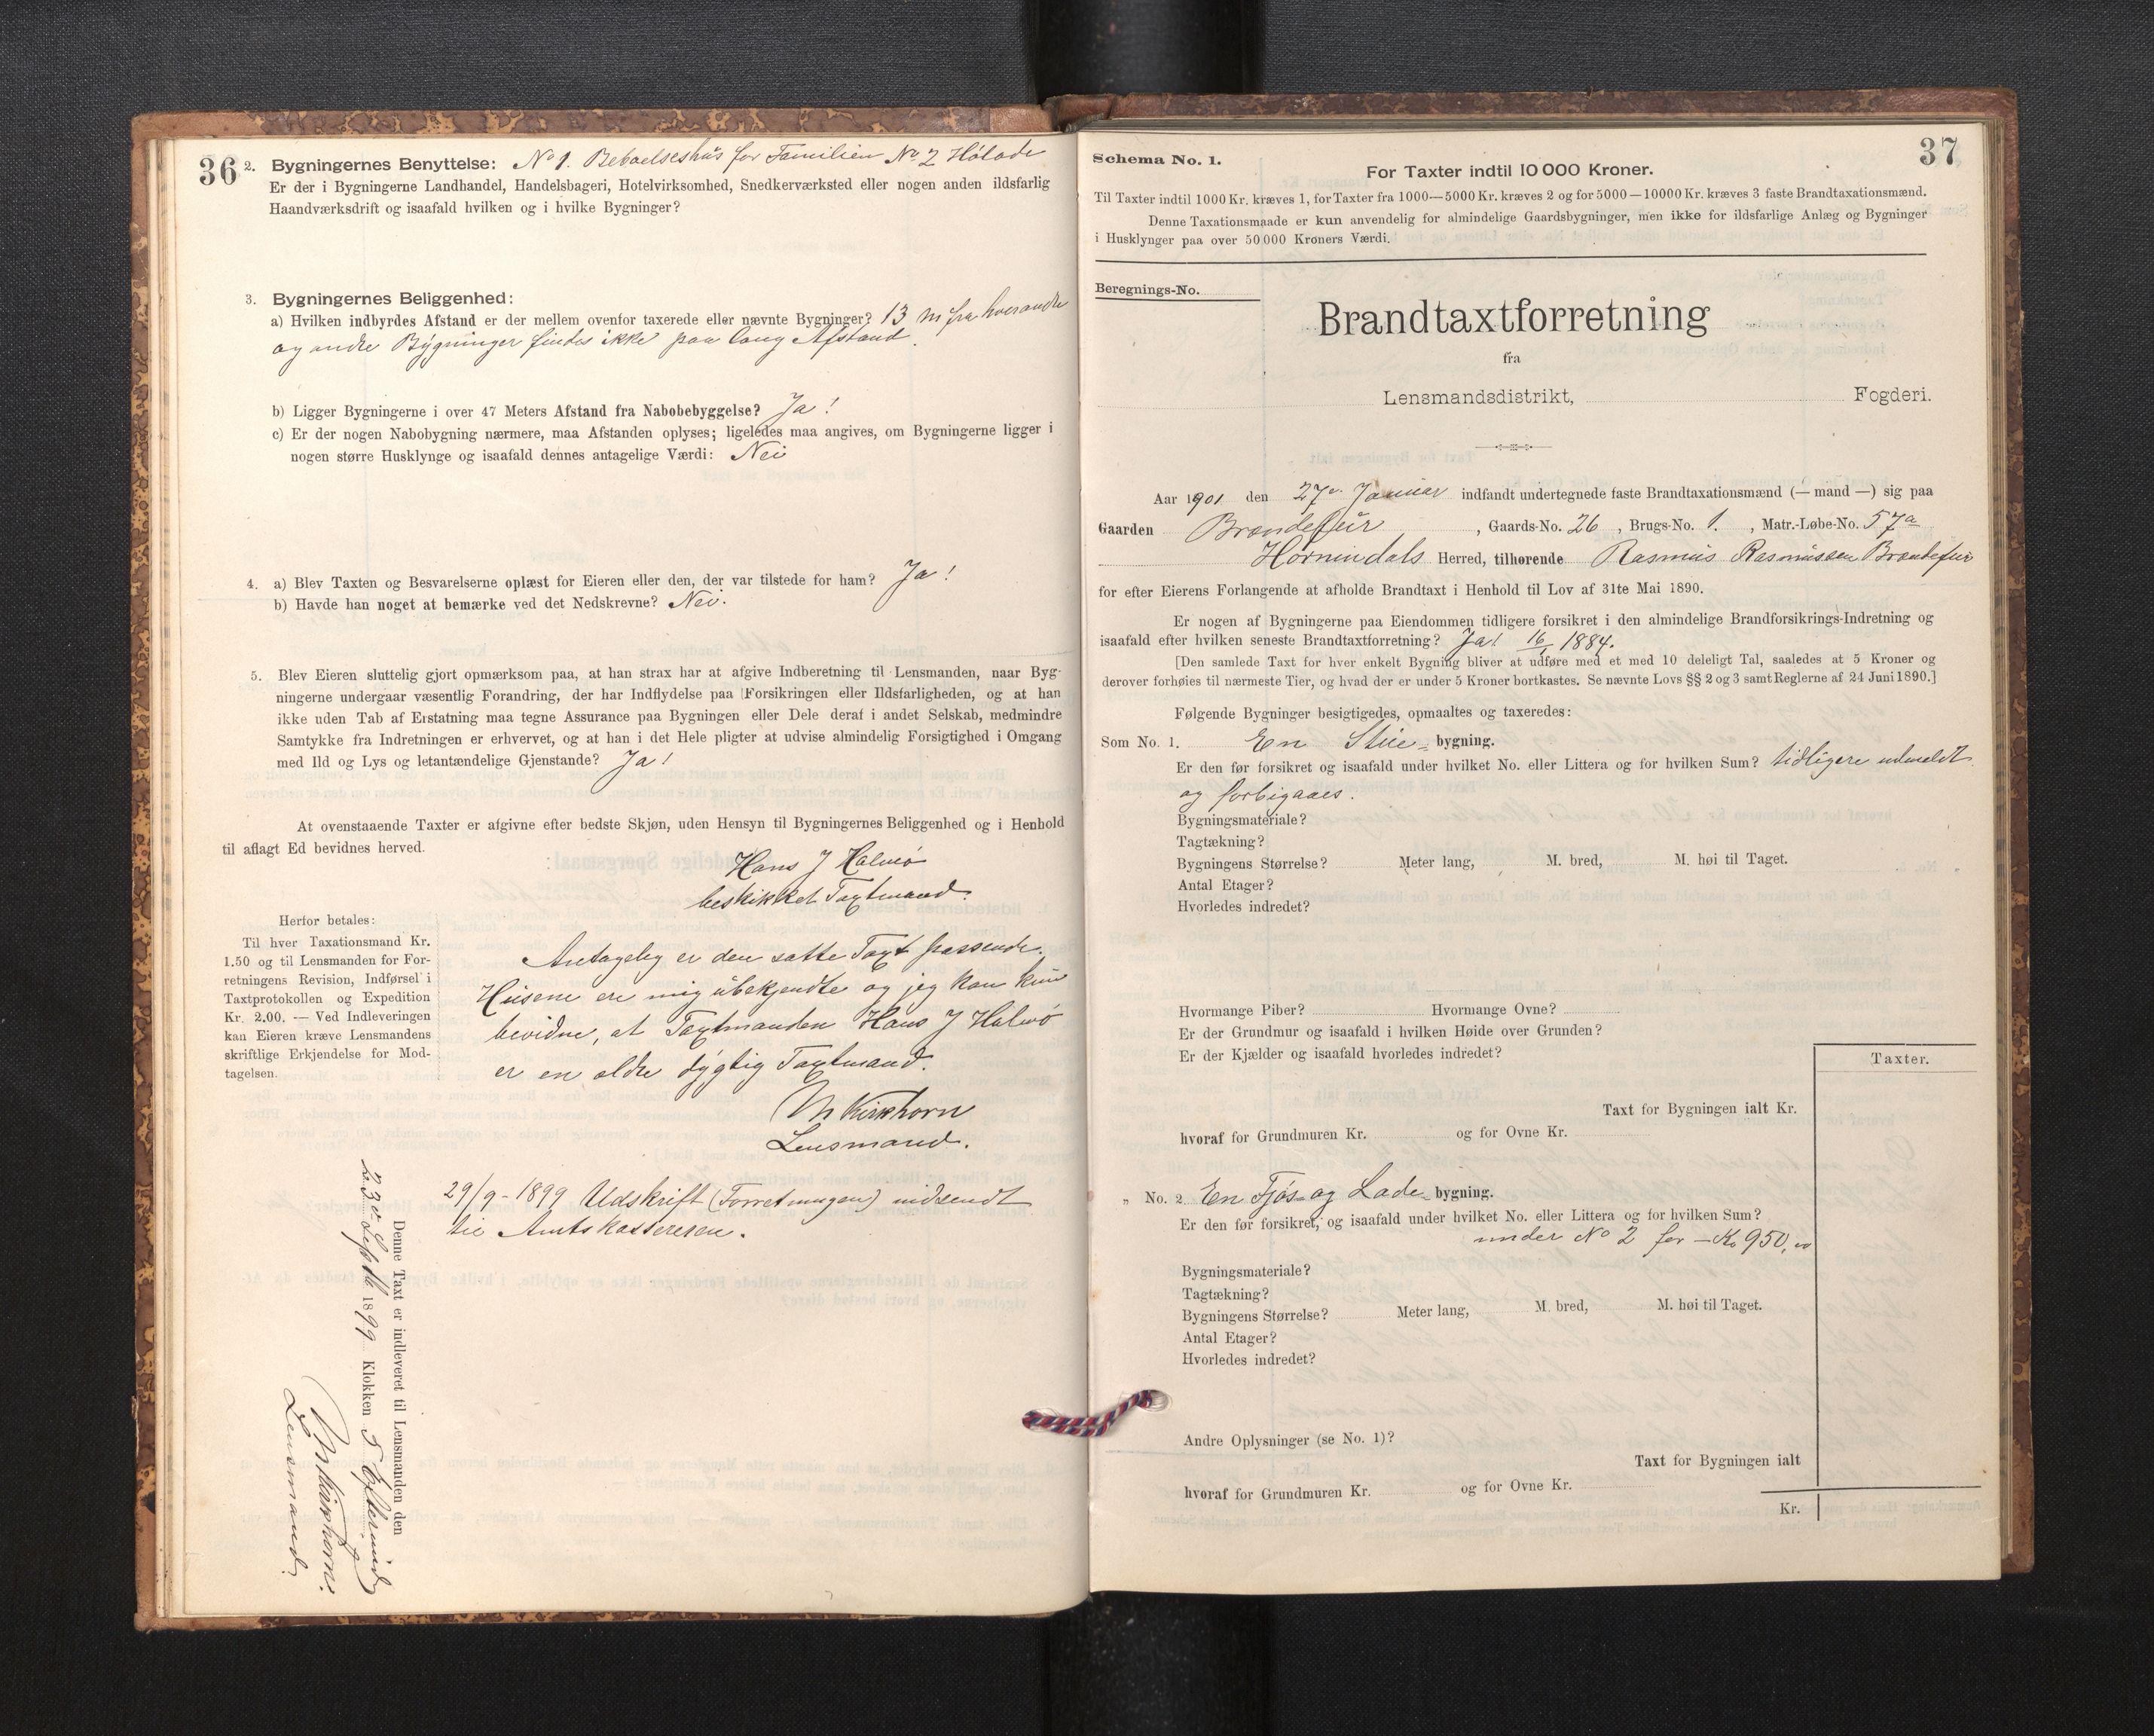 36
2. Bygningernes Benyttelse: No 1. Beboelseshus for Familien No 2 Hølade
Er der i Bygningerne Landhandel, Handelsbageri, Hotelvirksomhed, Snedkerværksted eller nogen anden ildsfarlig
Haandværksdrift og isaafald hvilken og i hvilke Bygninger?
3. Bygningernes Beliggenhed:
a) Hvilken indbyrdes Afstand er der mellem ovenfor taxerede eller nævnte Bygninger? 13 m fra hverandre
og andre Bygninger findes ikke paa lang Afstand.
b) Ligger Bygningerne i over 47 Meters Afstand fra Nabobebyggelse? Ja!
c) Er der nogen Nabobygning nærmere, maa Afstanden oplyses; ligeledes maa angives, om Bygningerne ligger i
nogen større Husklynge og isaafald dennes antagelige Værdi: Nei
4. a) Blev Taxten og Besvarelserne oplæst for Eieren eller den, der var tilstede for ham? Ja!
b) Havde han noget at bemærke ved det Nedskrevne? Nei.
5. Blev Eieren sluttelig gjort opmærksom paa, at han strax har at afgive Indberetning til Lensmanden, naar Byg-
ningerne undergaar væsentlig Forandring, der har Indflydelse paa Forsikringen eller Ildsfarligheden, og at han
ikke uden Tab af Erstatning maa tegne Assurance paa Bygningen eller Dele deraf i andet Selskab, medmindre
Samtykke fra Indretningen er erhvervet, og at han i det Hele pligter at udvise almindelig Forsigtighed i Omgang
med Ild og Lys og letantændelige Gjenstande? Ja!
At ovenstaaende Taxter er afgivne efter bedste Skjøn, uden Hensyn til Bygningernes Beliggenhed og i Henhold
til aflagt Ed bevidnes herved.
Hans J Halmø
beskikket Taxtmand.
Herfor betales:
Til hver Taxationsmand Kr.
1.50 og til Lensmanden for For-
retningens Revision, Indførsel i
Taxtprotokollen og Expedition
Kr. 2.00. — Ved Indleveringen
kan Eieren kræve Lensmandens
skriftlige Erkjendelse for Mod-
tagelsen.
Antagelig er den satte Taxt passende.
Husene ere mig ubekjendte og jeg kan kun
bevidne, at Taxtmanden Hans J Halmø
er en ældre dygtig Taxtmand.
M Kirkhorn
Lensmand.
29/9 - 1899 Udskrift (Forretningen) indsendt
til Amtskassereren.
Denne Taxt er indleveret til Lensmanden den
23de Septb 1899 Klokken 5 Eftermidd
M Kirkhorn.
Lensmand.
37
Schema No. 1.
For Taxter indtil 10 000 Kroner.
Til Taxter indtil 1000 Kr. kræves 1, for Taxter fra 1000—5000 Kr. kræves 2 og for 5000—10000 Kr. kræves 3 faste Brandtaxationsmænd.
Denne Taxationsmaade er kun anvendelig for almindelige Gaardsbygninger, men ikke for ildsfarlige Anlæg og Bygninger
i Husklynger paa over 50 000 Kroners Værdi.
Beregnings-No.
Brandtaxtforretning
fra
Lensmandsdistrikt, Fogderi.
Aar 1901 den 27de Januar indfandt undertegnede faste Brandtaxationsmænd (— mand —) sig paa
Gaarden Brændefur, Gaards-No. 26, Brugs-No. 1., Matr.-Løbe-No. 57a
Hornindals Herred, tilhørende Rasmus Rasmussen Brændefur
for efter Eierens Forlangende at afholde Brandtaxt i Henhold til Lov af 31te Mai 1890.
Er nogen af Bygningerne paa Eiendommen tidligere forsikret i den almindelige Brandforsikrings-Indretning og
isaafald efter hvilken seneste Brandtaxtforretning? Ja! 16/1 1884.
[Den samlede Taxt for hver enkelt Bygning bliver at udføre med et med 10 deleligt Tal, saaledes at 5 Kroner og
derover forhøies til nærmeste Tier, og hvad der er under 5 Kroner bortkastes. Se nævnte Lovs §§ 2 og 3 samt Reglerne af 24 Juni 1890.]
Følgende Bygninger besigtigedes, opmaaltes og taxeredes:
Som No. 1. En Stue- bygning.
Er den før forsikret og isaafald under hvilket No. eller Littera og for hvilken Sum? tidligere udmeldt
og forbigaaes.
Bygningsmateriale?
Tagtækning?
Bygningens Størrelse? Meter lang, M. bred, M. høi til Taget.
Antal Etager?
Hvorledes indredet?
Hvormange Piber? Hvormange Ovne?
Er der Grundmur og isaafald i hvilken Høide over Grunden?
Er der Kjælder og isaafald hvorledes indredet?
Taxter.
Taxt for Bygningen ialt Kr.
hvoraf for Grundmuren Kr. og for Ovne Kr.
„ No. 2. En Fjøs- og Lade- bygning.
Er den før forsikret, og isaafald under hvilket No. eller Littera og for hvilken Sum?
under No 2 for — Kr 950,00
Bygningsmateriale?
Tagtækning?
Bygningens Størrelse? Meter lang, M. bred, M. høi til Taget.
Antal Etager?
Hvorledes indredet?
Andre Oplysninger (se No. 1)?
Taxt for Bygningen ialt
hvoraf for Grundmuren Kr. og for Ovne Kr.
Kr.